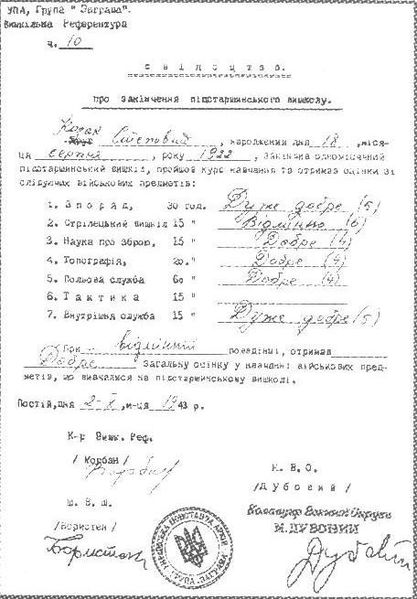 УПА, Група "Заграва".
Вишкільна Референтура
ч. 10
СВІДОЦТВО.
про закінчення підстаршинського вишколу.
Козак Ситовий, народжений дня 18, міся-
ця серпня, року 1922, закінчив одномісячний
підстаршинський вишкіл, пройшов курс навчання та отримав оцінки зі
слідуючих військових предметів:
1. Впоряд, 30 год. Дуже добре (5)
2. Стрілецький вишкіл 15 " Відмінно (6)
3. Наука про зброю, 15 " Добре (4)
4. Топографія, 20. " Добре (4)
5. Польова служба 60 " Добре (4)
6. Тактика 15 "
7. Внутрішня служба 15 " Дуже добре (5)
При відмінній поведінці, отримав
Добре загальну оцінку у навчанні військових пред-
метів, що вивчалися на підстаршинському вишколі.
Постій, дня 2-X, м-ця 1943 р.
К-р Вишк. Реф.
/ Корбан /
К. В. О.
/Дубовий /
Командир Воєнної Округи
М. ДУБОВИЙ
Ш. В. Ш.
/Бористен /
Бористен
Дубовий